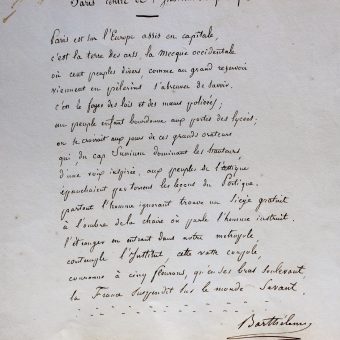 Paris centre de l'
Paris est sur l'Europe assis en capitale,
c'est la terre des arts, la Mecque occidentale
où cent peuples divers, comme au grand reservoir
viennent en pélerins s'abreuver de savoir.
c'est le foyer des lois et des mœurs policées;
un peuple enfant bourdonne aux portes des lycées;
on se croirait aux jours de ces grands orateurs
qui, du cap Sunium dominant les hauteurs,
d'une voix inspirée, aux peuples de l'attique
épanchaient par torrens les leçons du Portique.
partout l'homme ignorant trouve un siège gratuit
à l'ombre de la chaire où parle l'homme instruit.
l'étranger en entrant dans notre métropole
contemple l'Institut, cette vaste coupole,
couronne à cinq fleurons, qu'en ses bras soulevant
la France suspendit sur le monde savant.
Barthélemy